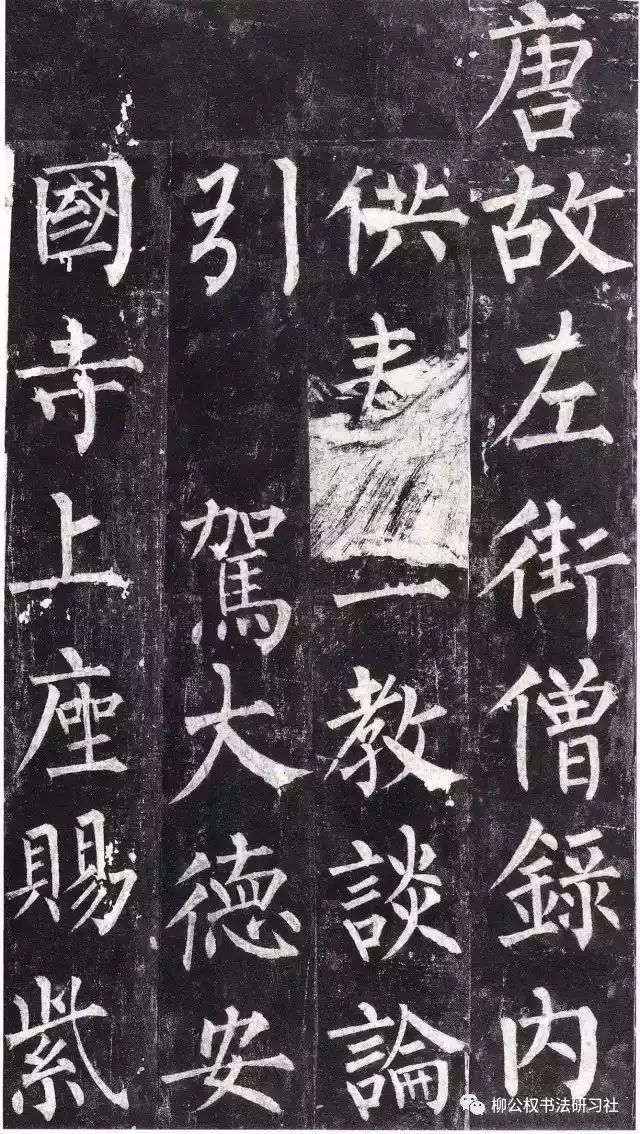 唐故左街僧錄內
供一教談論
引駕大德安
國寺上座賜紫
柳公权书法研习社